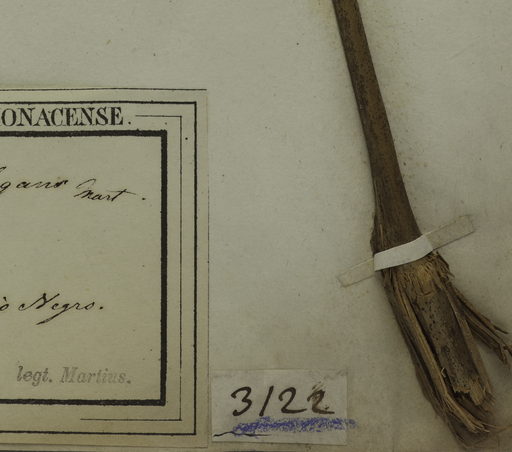 ONACENSE.
gans Mart.
o Negro.
legt. Martius.
3122